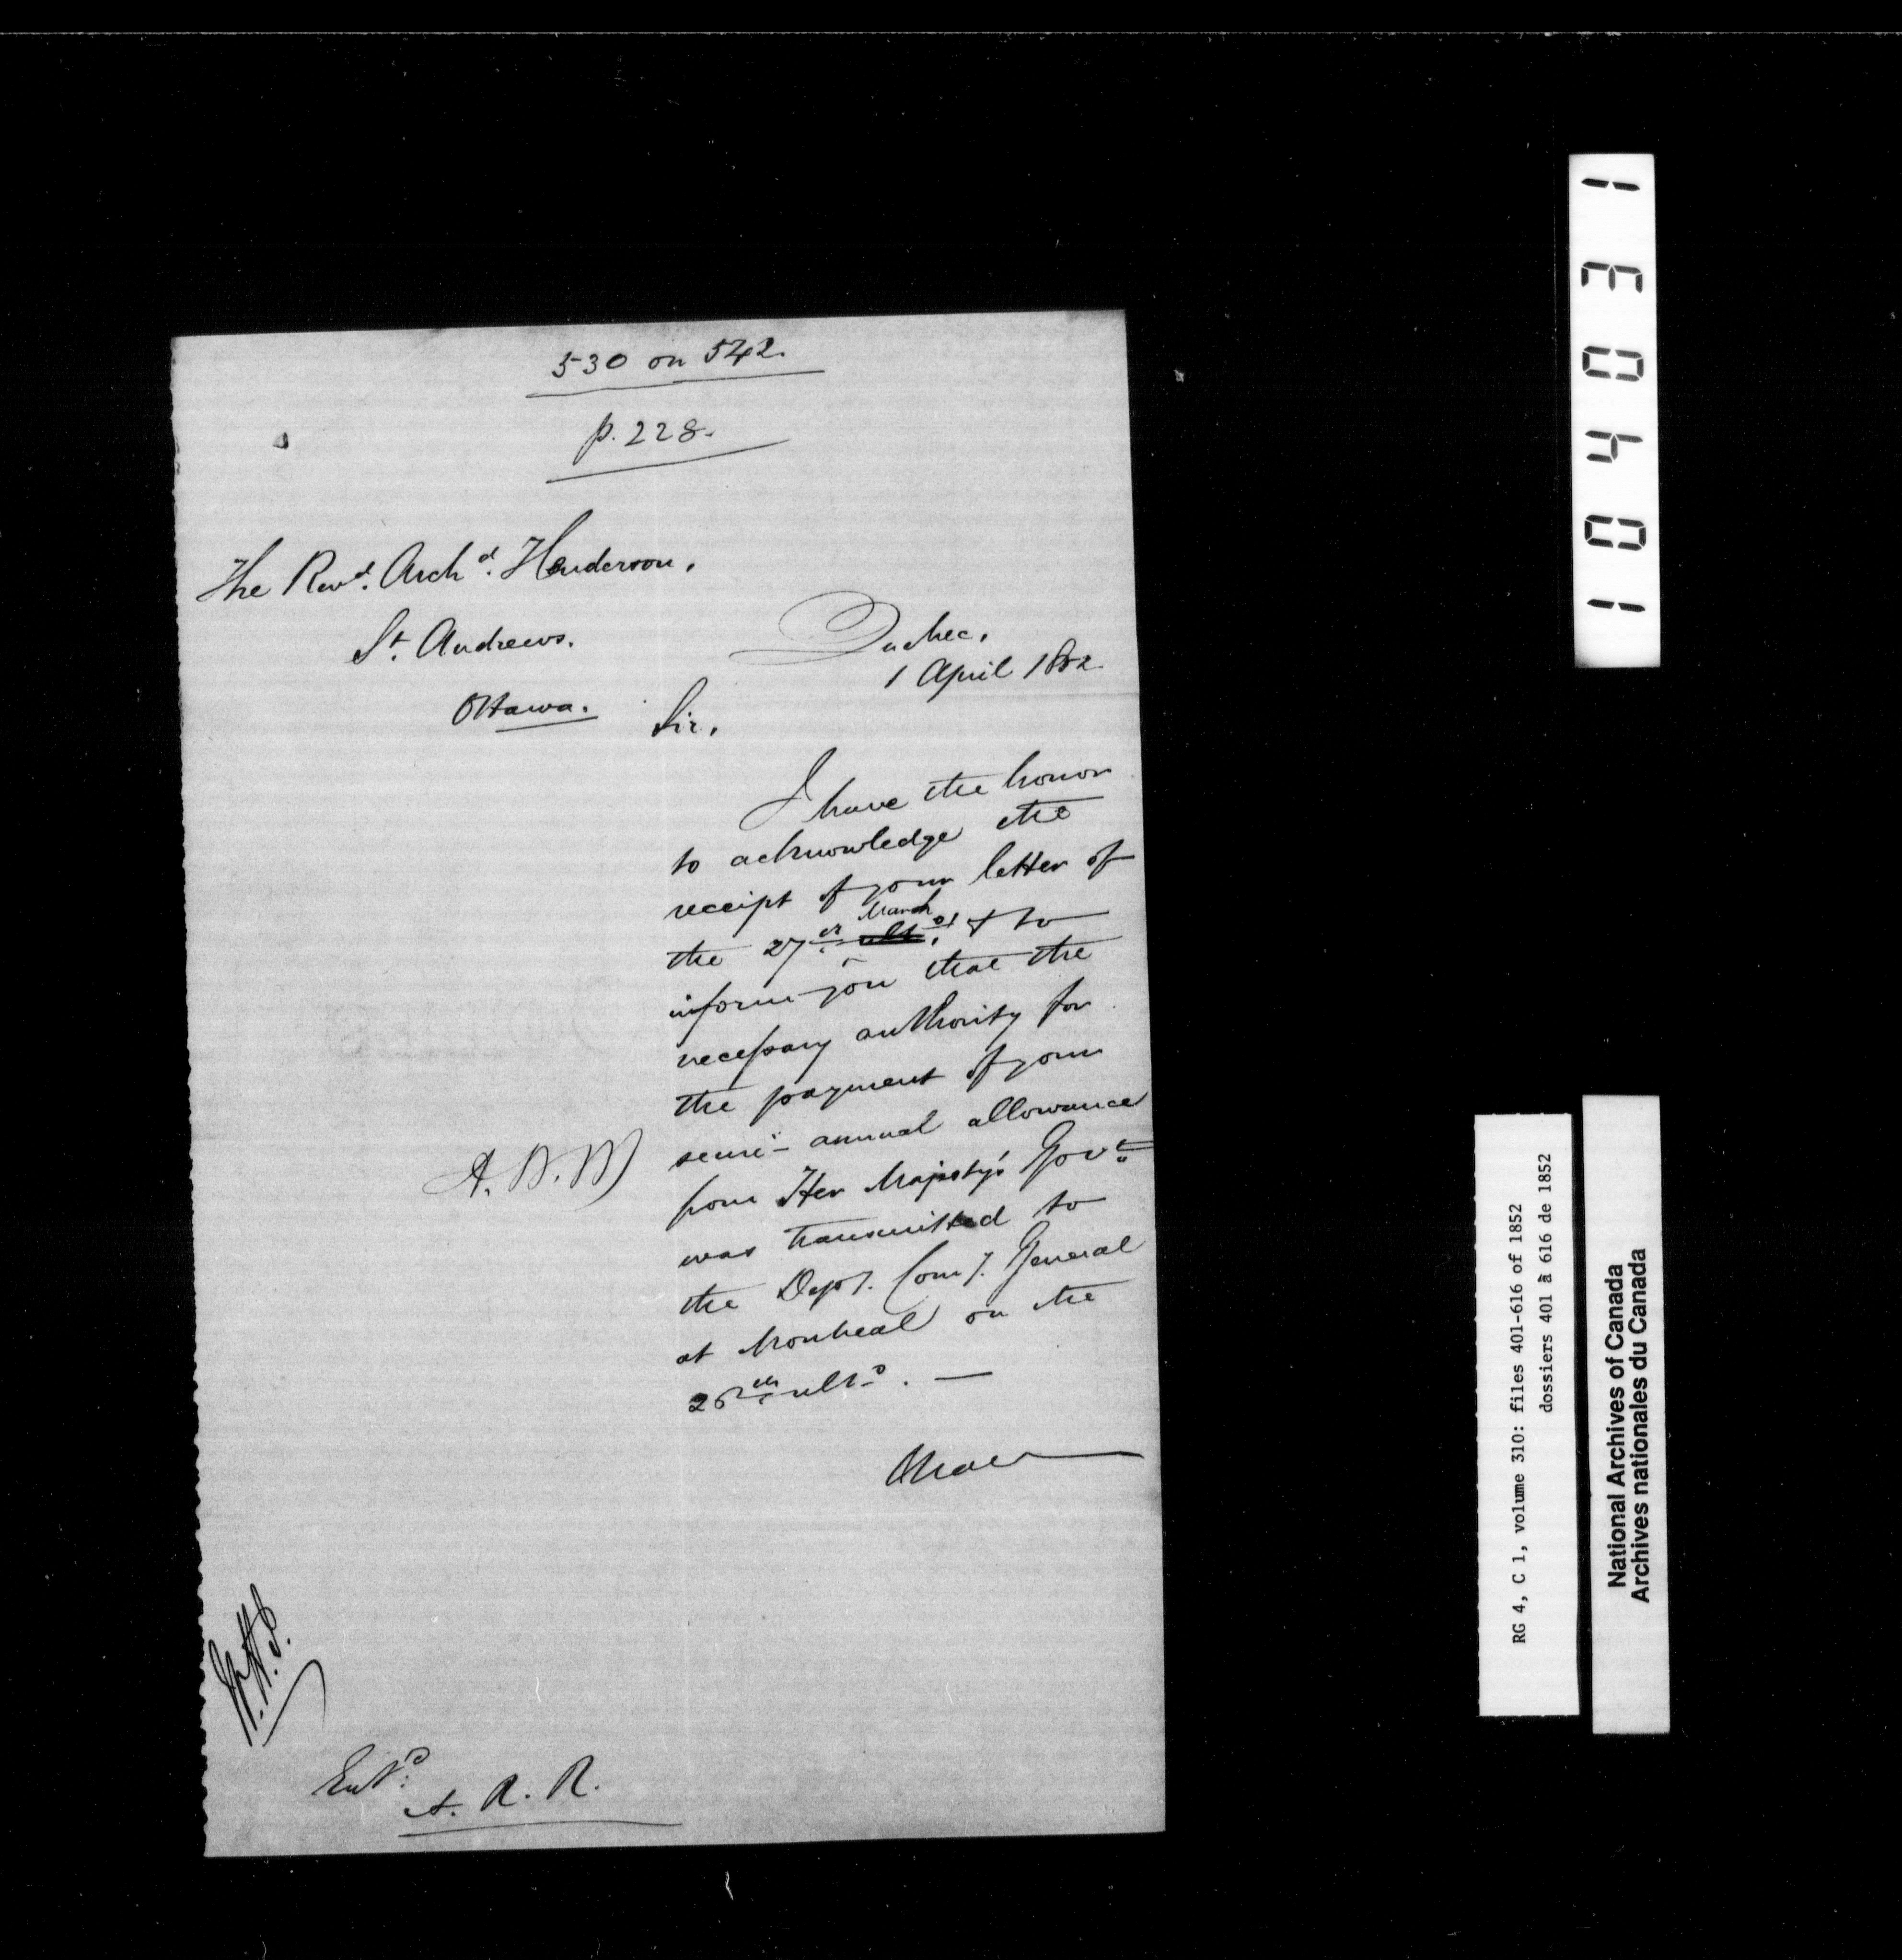 530 on 542.
p. 228.
The Revd. Archd. Henderson,
St. Andrews.
Ottawa.
Quebec,
1 April 1852
Sir,
I have the honor
to acknowledge the
receipt of your letter of
March
the 27th ulto. & to
inform you that the
necessary authority for
the payment of your
semi-annual allowance
from Her Majesty's Govt.
was transmitted to
the Depy. Comy. General
at Montreal on the
ulto. —
A. N. M
Entd.
A. R. R.
10403 1
RG 4, C 1, volume 310: files 401-616 of 1852
dossiers 401 à 616 de 1852
National Archives of Canada
Archives nationales du Canada